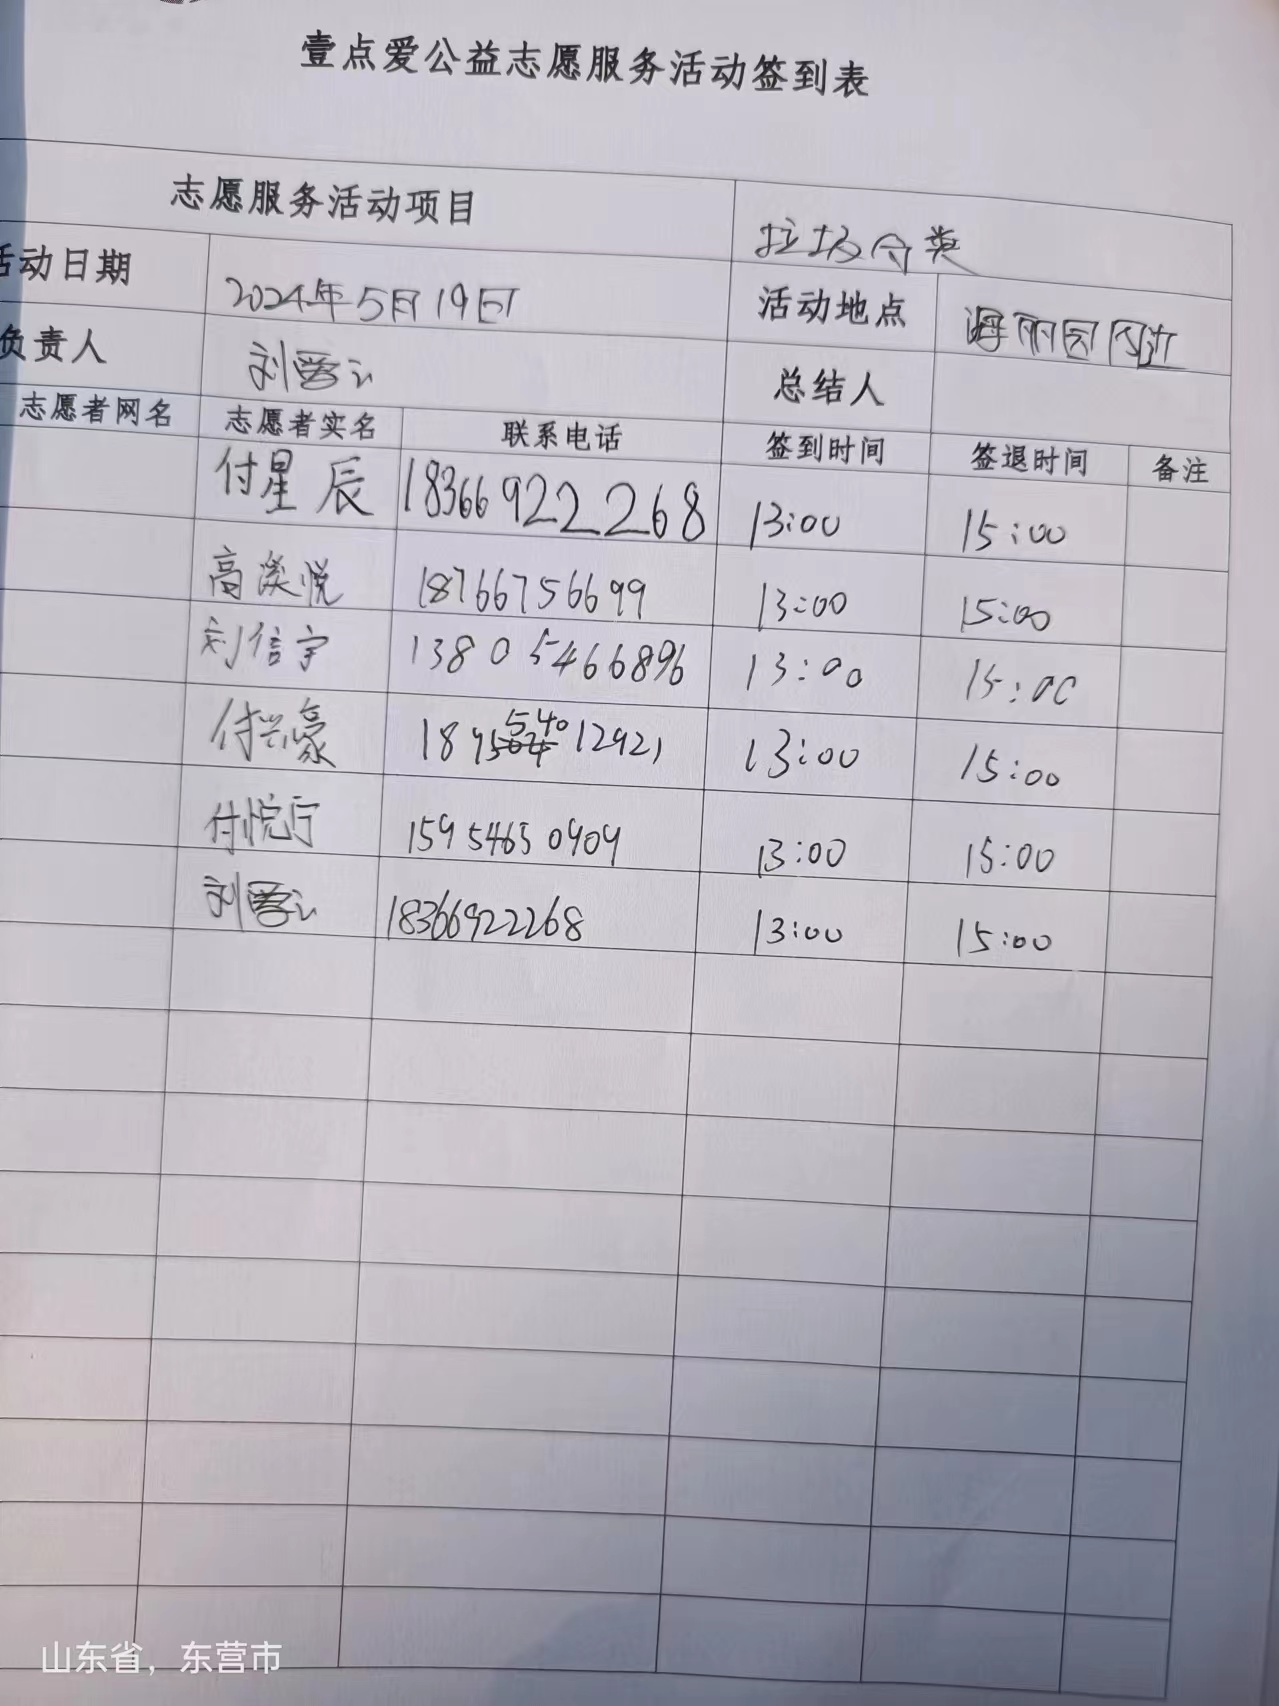 壹点爱公益志愿服务活动签到表
志愿服务活动项目 垃圾分类
活动日期 2024年5月19日 活动地点 海丽园附近
负责人 刘雪云 总结人
志愿者网名 志愿者实名 联系电话 签到时间 签退时间 备注
付星辰 18366922268 13:00 15:00
高淡悦 18766756699 13:00 15:00
刘信宇 13805466896 13:00 15:00
付兴豪 13:00 15:00
付悦宁 15954650909 13:00 15:00
刘雪云 18366922268 13:00 15:00
山东省，东营市